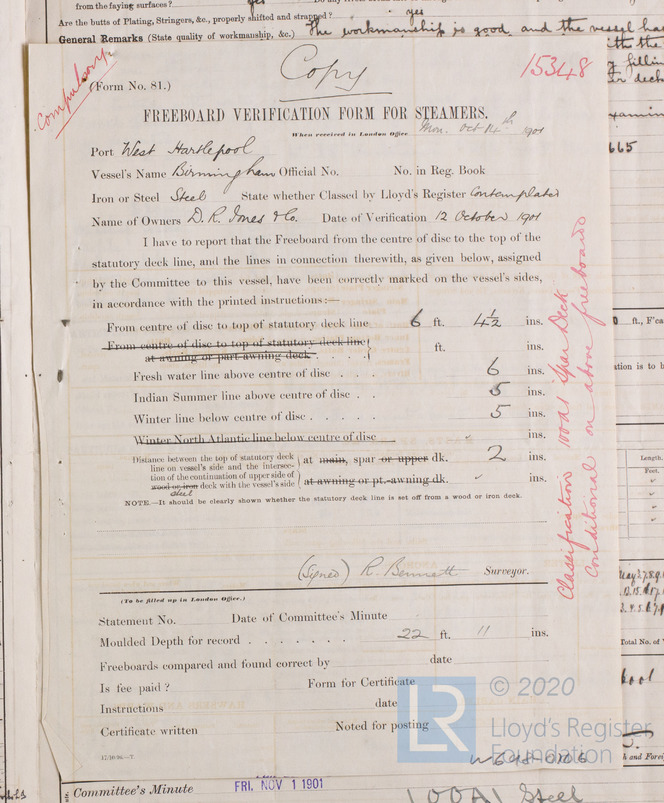 from the faying surfaces? yes
Are the butts of Plating, Stringers, &c., properly shifted and strapped? yes
General Remarks (State quality of workmanship, &c.) The workmanship is good and the vessel has
Compulsory
(Form No. 81.)
Copy
15348
FREEBOARD VERIFICATION FORM FOR STEAMERS.
When received in London Office Mon. Oct 14th 1901
Port West Hartlepool
Vessel's Name Birmingham Official No. No. in Reg. Book
Iron or Steel Steel State whether Classed by Lloyd's Register Contemplated
Name of Owners D. R. Jones & Co. Date of Verification 12 October 1901
I have to report that the Freeboard from the centre of disc to the top of the
statutory deck line, and the lines in connection therewith, as given below, assigned
by the Committee to this vessel, have been correctly marked on the vessel's sides,
in accordance with the printed instructions:—
From centre of disc to top of statutory deck line 6 ft. 4½ ins.
From centre of disc to top of statutory deck line
at awning or part awning deck . . ft. ins.
Fresh water line above centre of disc . . . 6 ins.
Indian Summer line above centre of disc . . 5 ins.
Winter line below centre of disc . . . . . 5 ins.
Winter North Atlantic line below centre of disc ins.
Distance between the top of statutory deck
line on vessel's side and the intersec-
tion of the continuation of upper side of
wood or iron deck with the vessel's side
steel
at main, spar or upper dk. 2 ins.
at awning or pt.-awning dk. ins.
NOTE.—It should be clearly shown whether the statutory deck line is set off from a wood or iron deck.
Classification 100A1 Spar Deck
Conditional on above freeboards
(Signed) R. Bennett Surveyor.
(To be filled up in London Office.)
Statement No. Date of Committee's Minute
Moulded Depth for record . . . . . . . 22 ft. 11 ins.
Freeboards compared and found correct by date
Is fee paid? Form for Certificate
Instructions date
Certificate written Noted for posting
17/10/96.—T.
LR © 2020
Lloyd's Register
Foundation
W648-0106
Committee's Minute FRI. NOV 1 1901
100A1 Steel
665
ft., F'ca
Length.
Feet.
Total No. of